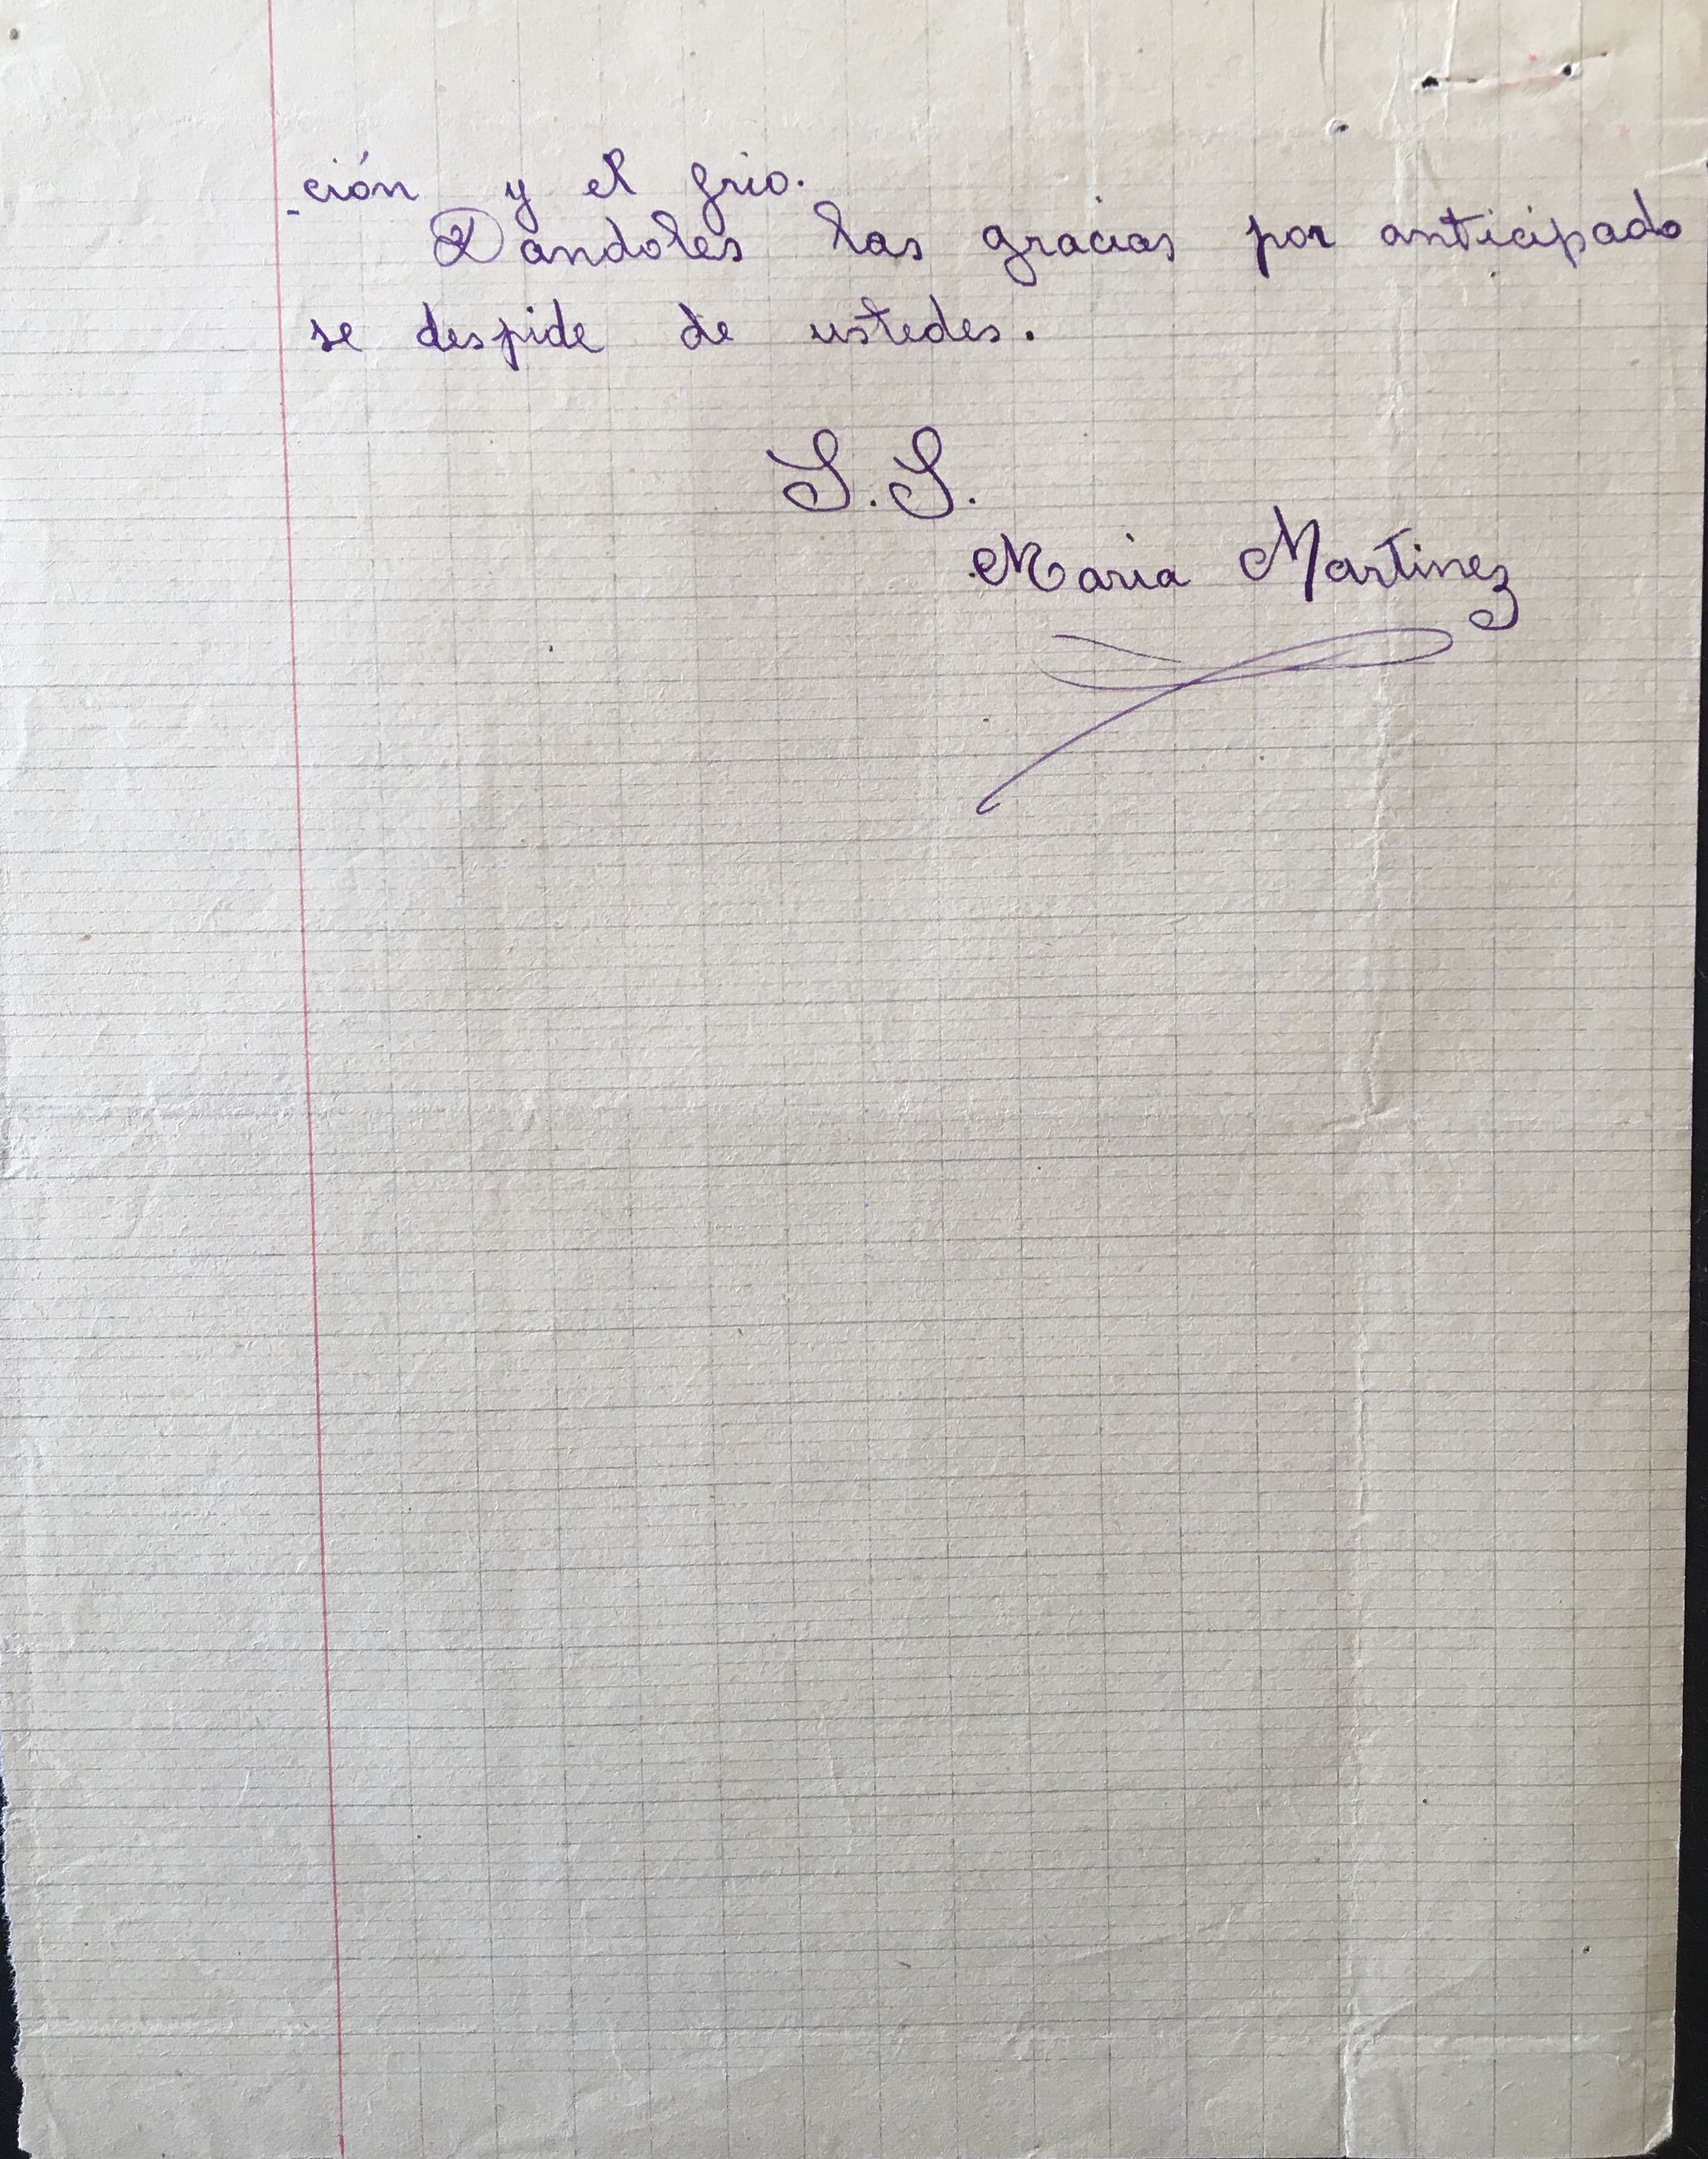 -ción y el frio.
Dandoles las gracias por anticipado
se despide de ustedes.
S.S.
Maria Martinez